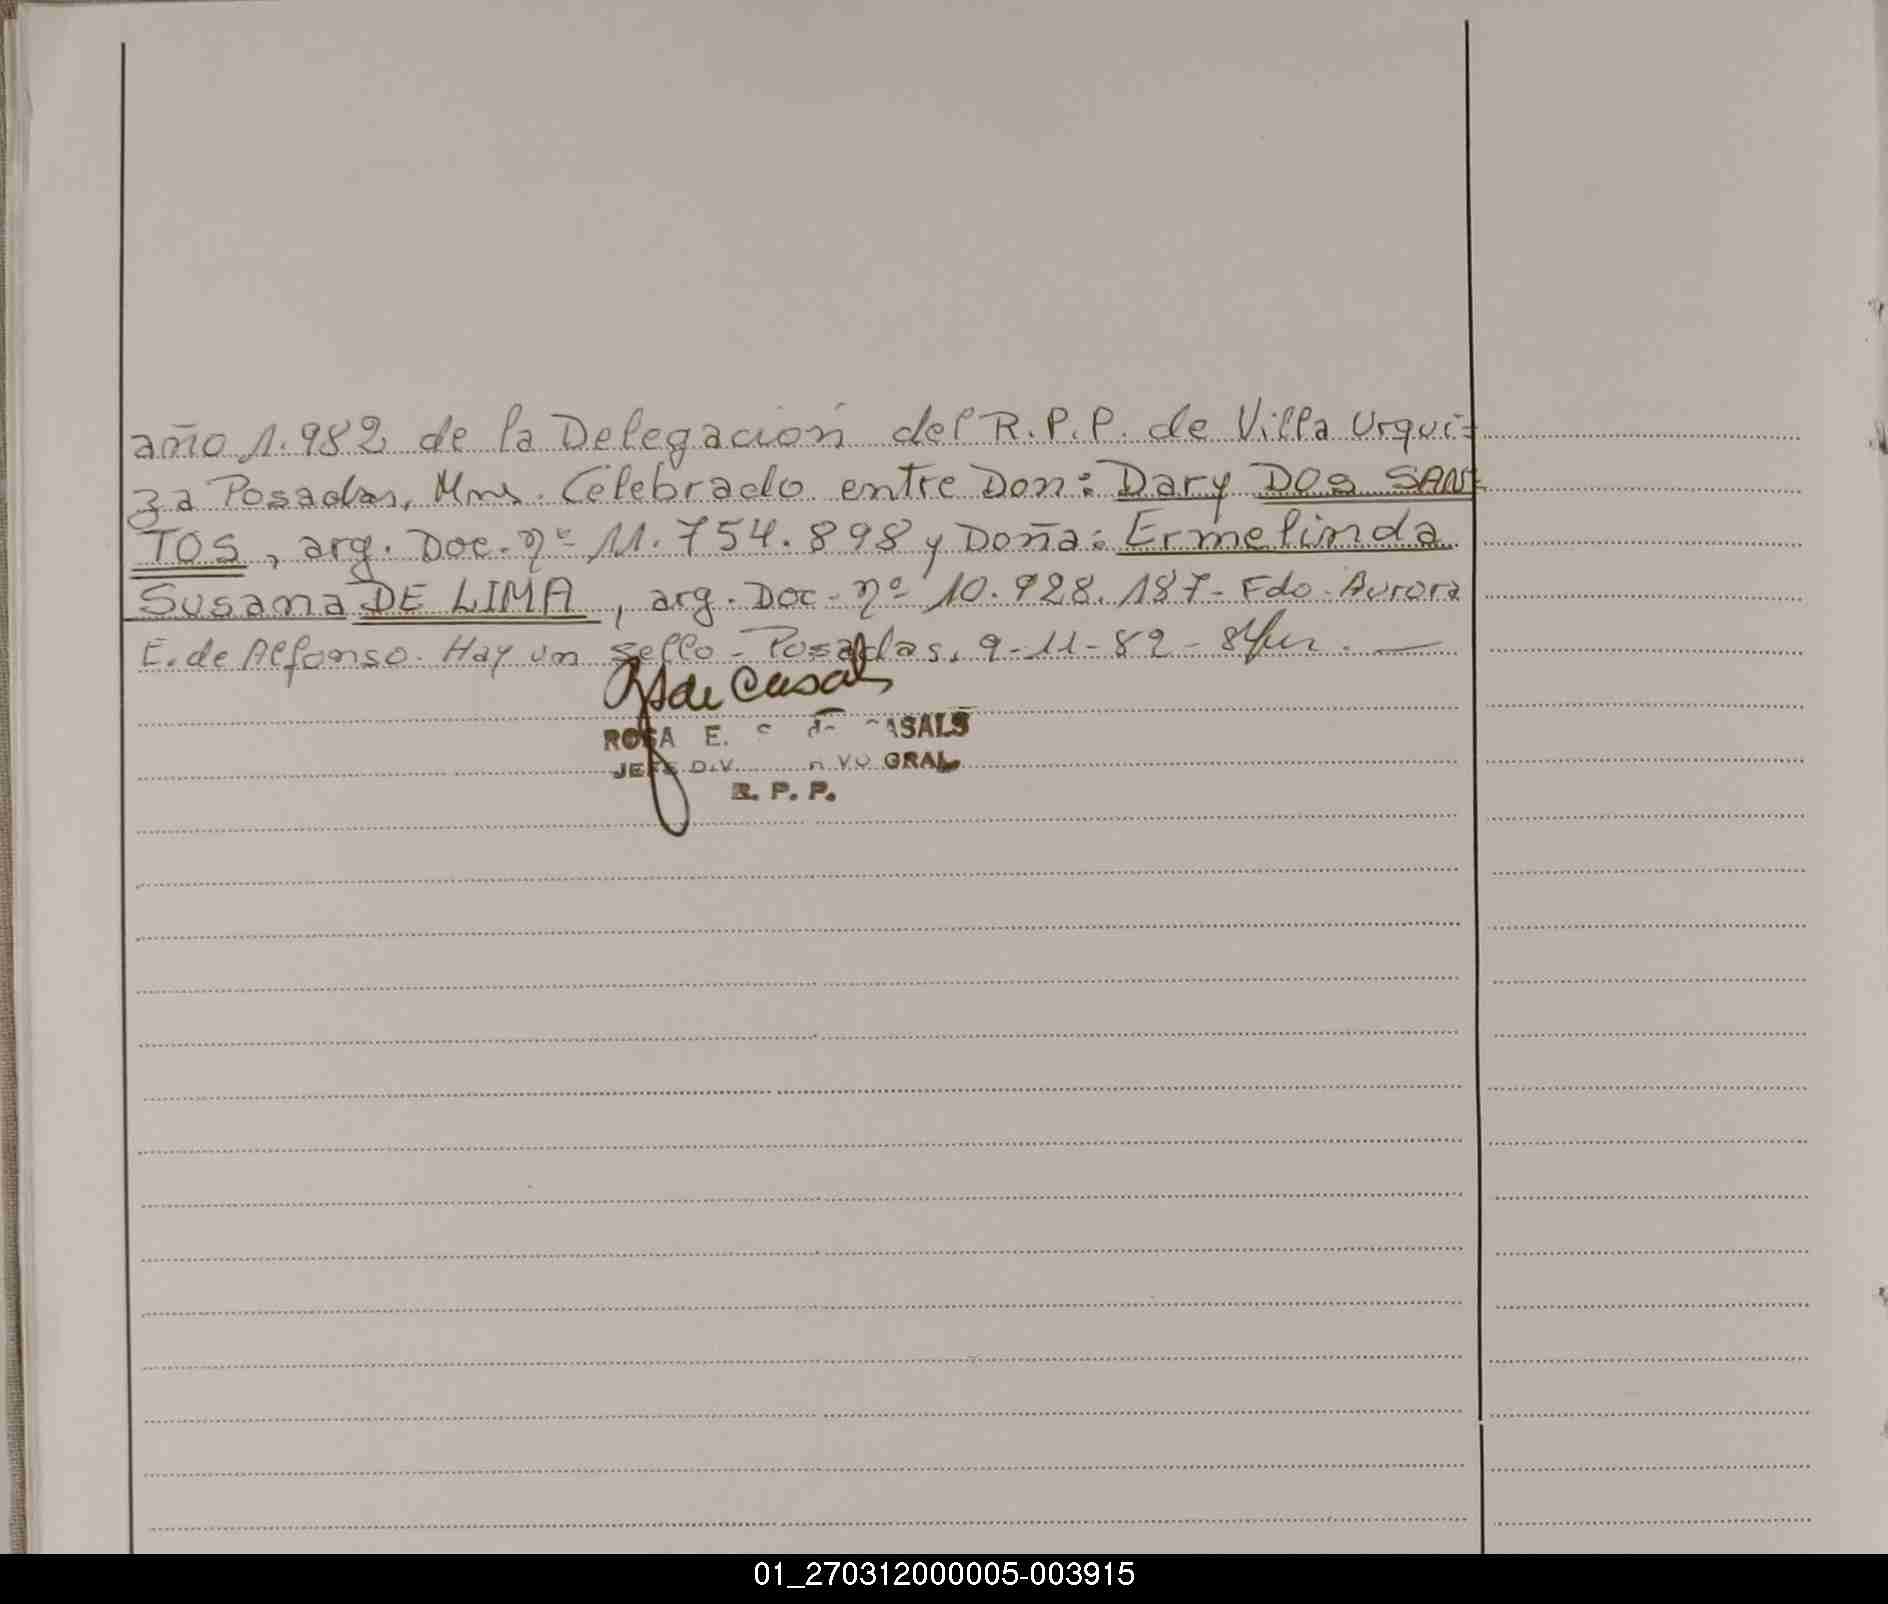 año 1.982 de la Delegación del R.P.P. de Villa Urqui=
za Posadas, Mns. Celebrado entre Don: Dary DOS SAN=
TOS, arg. Doc. nº 11.754.898 y Doña: Ermelinda
Susana DE LIMA, arg. Doc. nº 10.928.187- Fdo. Aurora
E. de Alfonso. Hay un sello - Posadas, 9-11-82 -
de Casals
ROSA E. CASALS
JEFE GRAL
R. P. P.
01_270312000005-003915